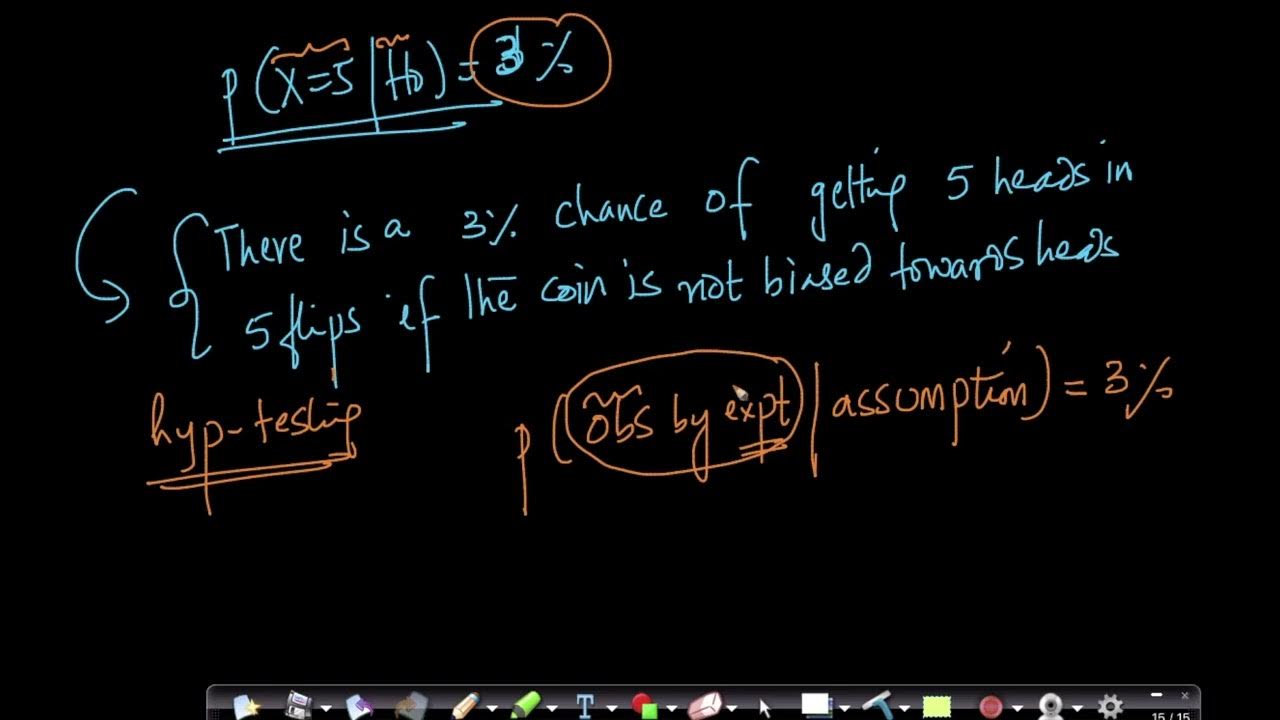 P(X=5|H0) = 3%
There is a 3% chance of getting 5 heads in
5 flips if the coin is not biased towards heads
hyp-testing
P(obs by expt|assumption) = 3%
T
15/15